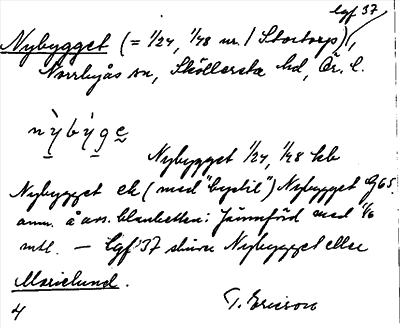 lgf 37
Nybygget (= 1/24, 1/48 nr. 1 Stortorp),
Norrbyås sn, Sköllersta hd, Ör. l.
nỳbỳge
Nybygget 1/24, 1/48 kb
Nybygget ek (med "bystil") Nybygget G65.
anm. å ars. blanketten: Jämnförd med 1/6
mtl. — Lgf 37 skrive Nybygget eller
Marielund.
4 T. Ericson